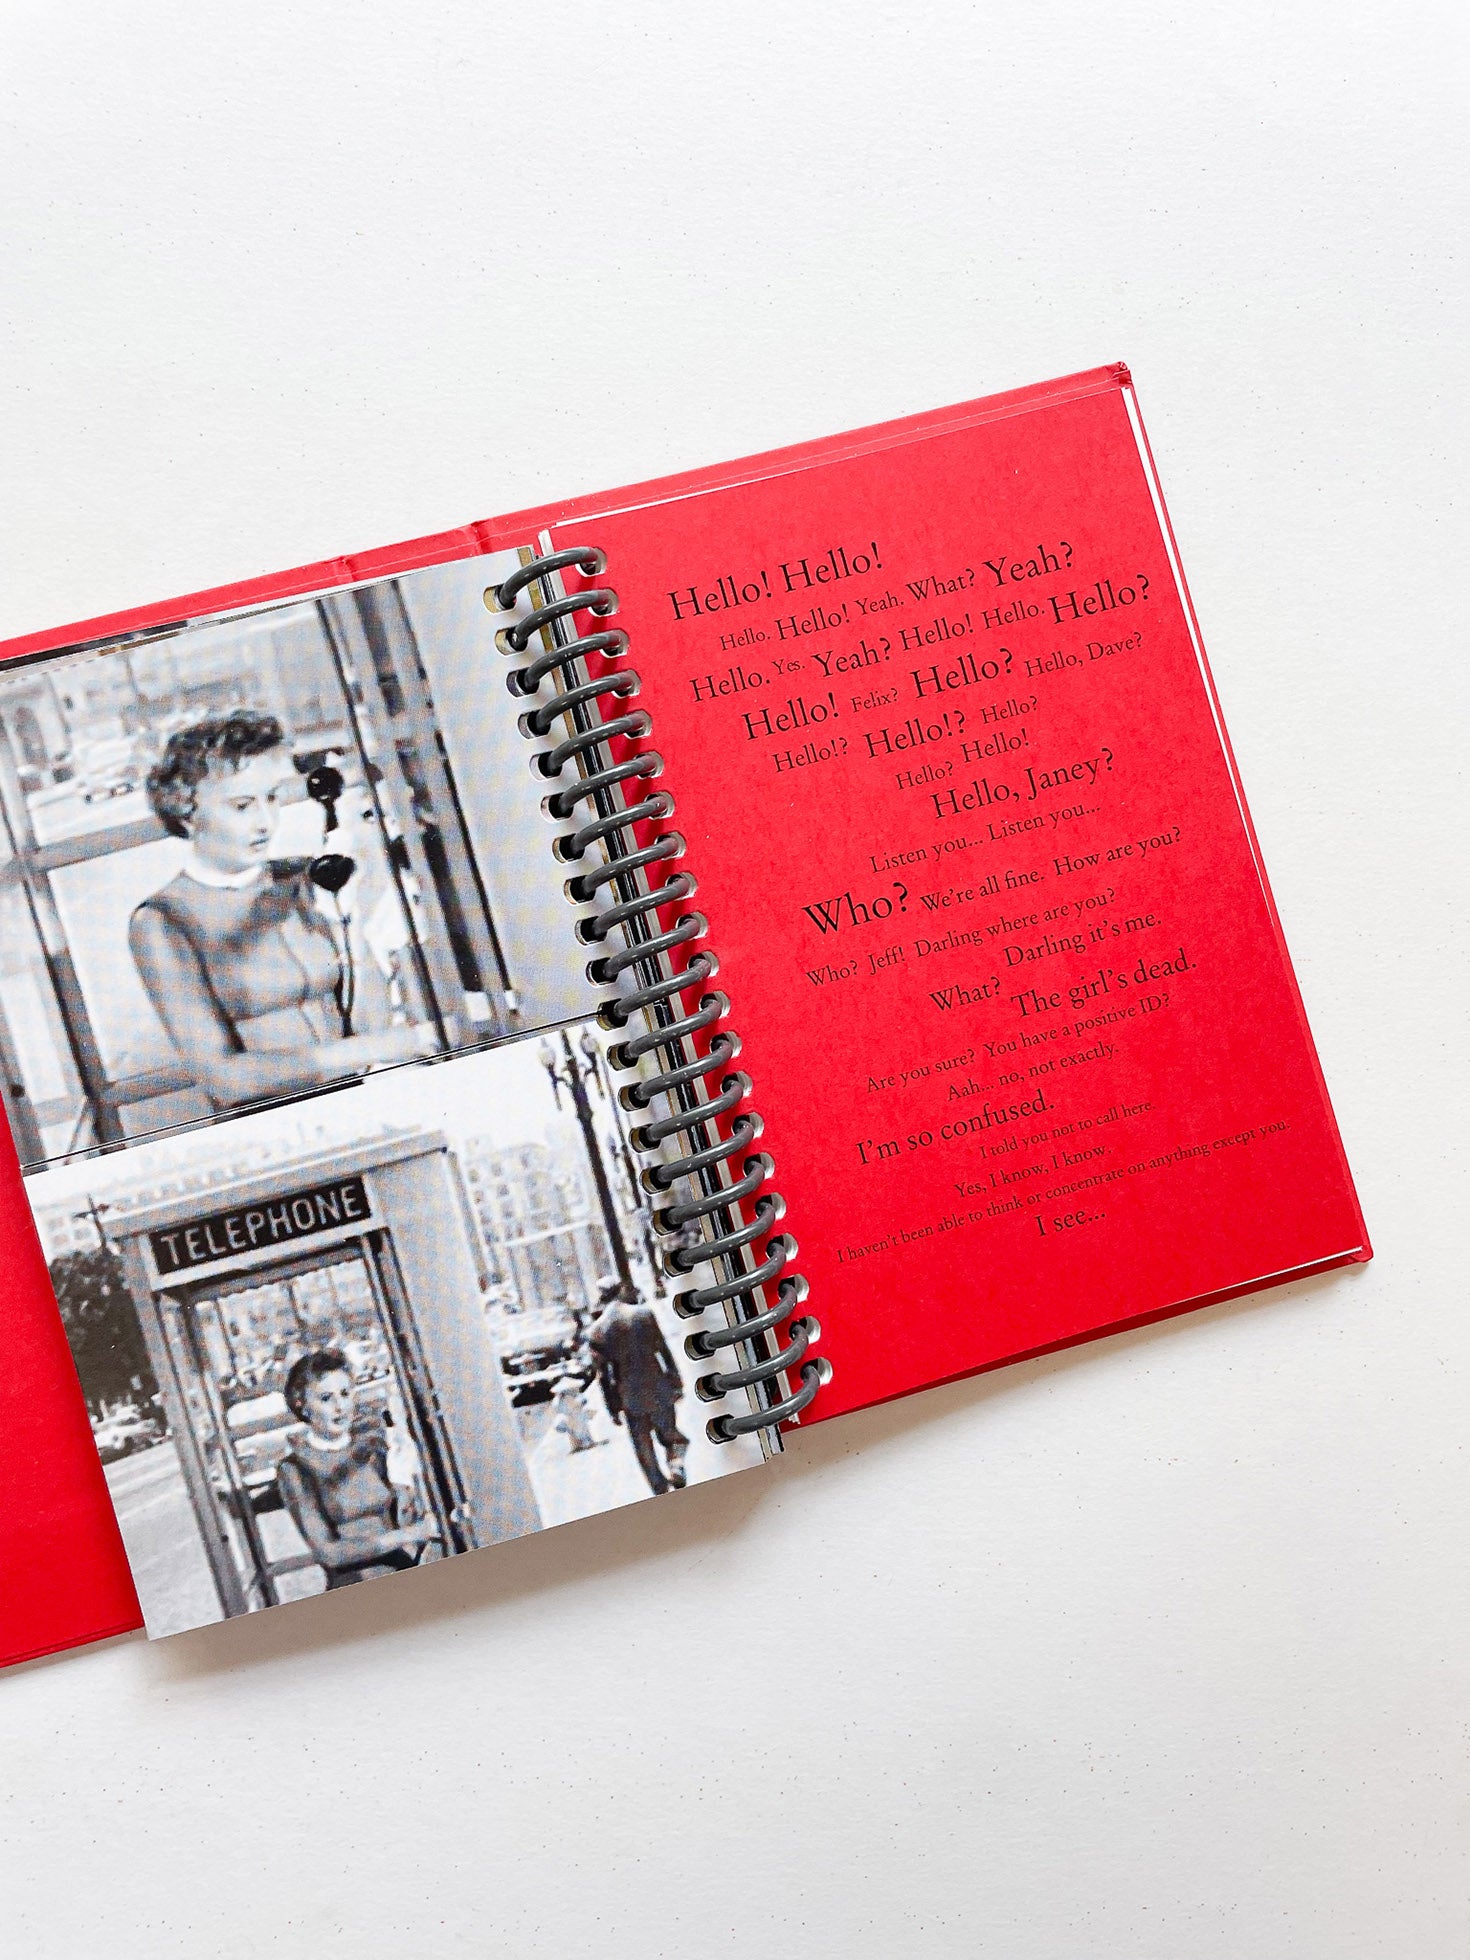 TELEPHONE
Hello! Hello!
Hello. Hello! Yeah. What? Yeah?
Hello. Yes. Yeah? Hello! Hello. Hello?
Hello! Felix? Hello? Hello, Dave?
Hello!? Hello!? Hello?
Hello? Hello!
Hello, Janey?
Listen you... Listen you...
Who? We're all fine. How are you?
Who? Jeff! Darling where are you?
Darling it's me.
What? The girl's dead.
Are you sure? You have a positive ID?
Aah... no, not exactly.
I'm so confused.
I told you not to call here.
Yes, I know, I know.
I haven't been able to think or concentrate on anything except you.
I see...